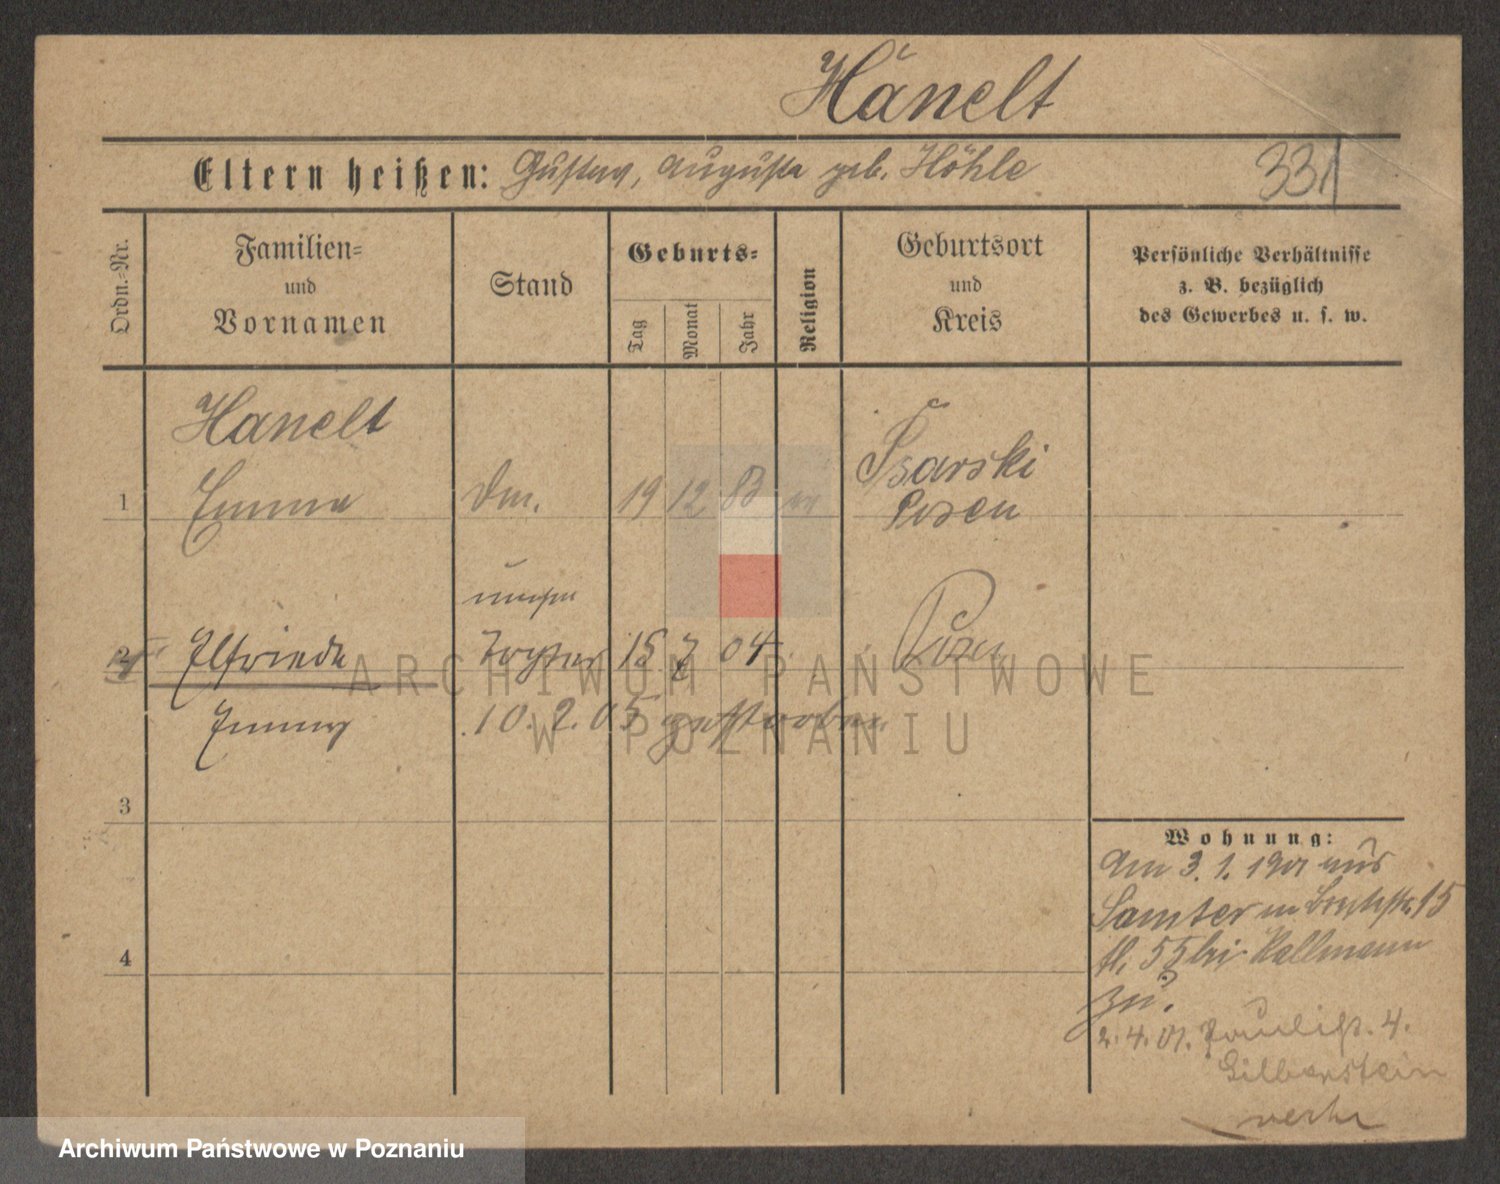 Hänelt
Eltern heißen: Gustav, Augusta geb. Höhle 331
Ordn.-Nr.
Familien-
und
Vornamen
Stand
Geburts-
Tag
Monat
Jahr
Religion
Geburtsort
und
Kreis
Persönliche Verhältnisse
z. B. bezüglich
des Gewerbes u. s. w.
Hanelt
1 Emma 19 12 83
Psarski
Posen
2 Elfriede Tochter 15 7 04 Posen
Emmy 10. 2. 05 gestorben
3
4
Wohnung:
Am 3. 1. 1901 aus
Samter 15
55 bei Kallmann
zu.
2. 4. 01. Paulist. 4.
Silberstein
ARCHIWUM PAŃSTWOWE
W POZNANIU
Archiwum Państwowe w Poznaniu